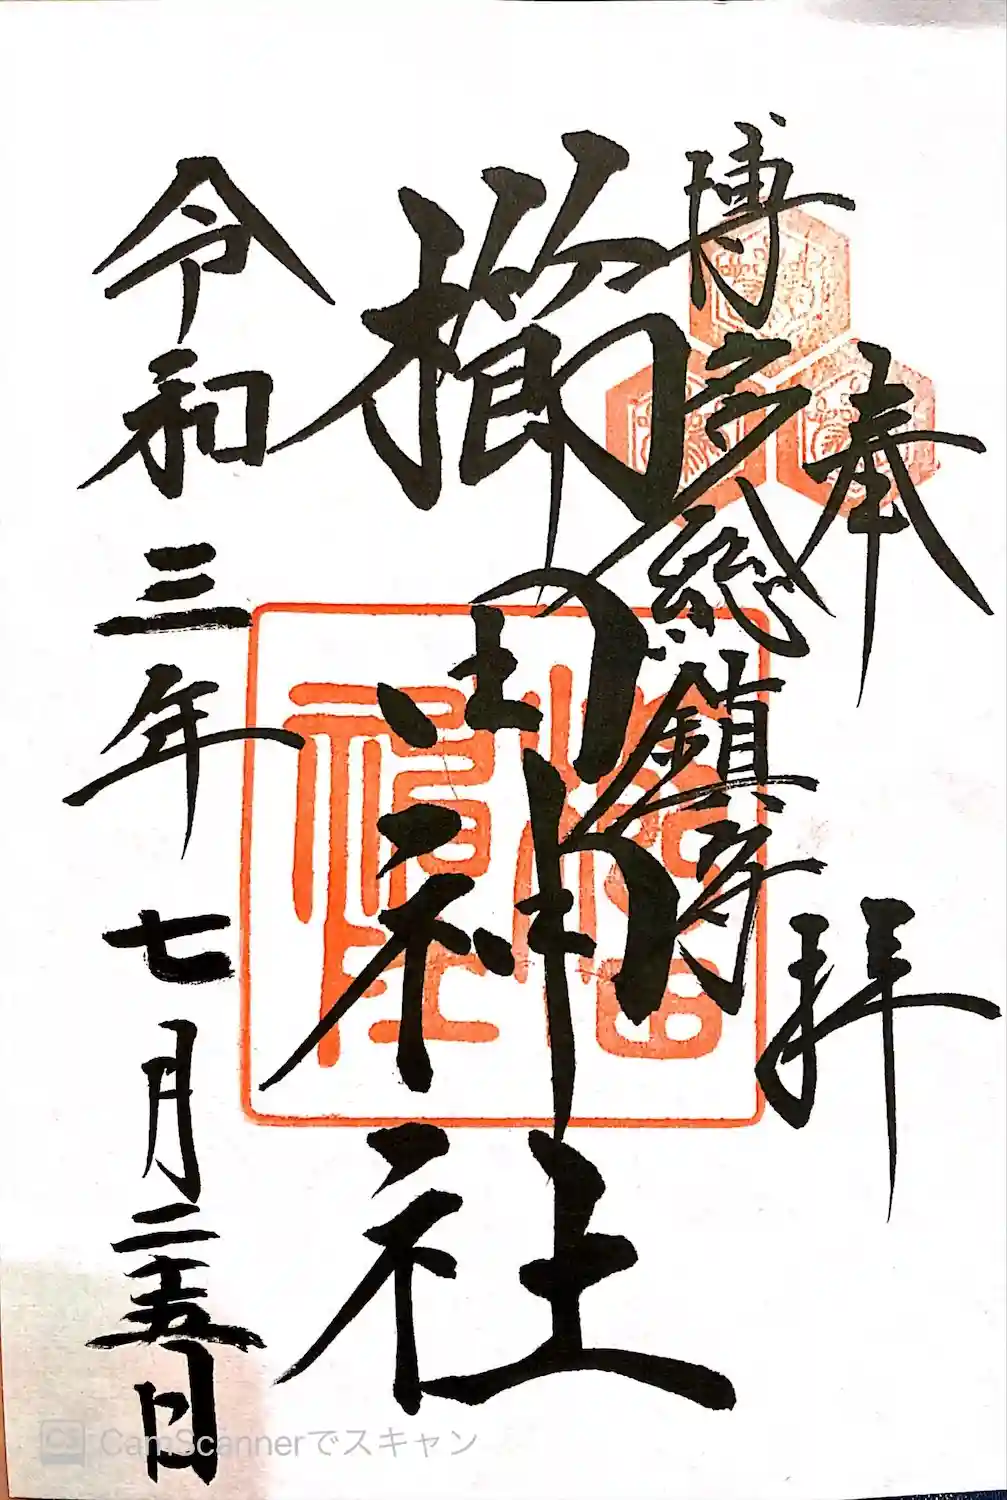 奉拝
博多総鎮守
櫛田神社
令和三年七月二十五日
櫛田神社
CS CamScannerでスキャン